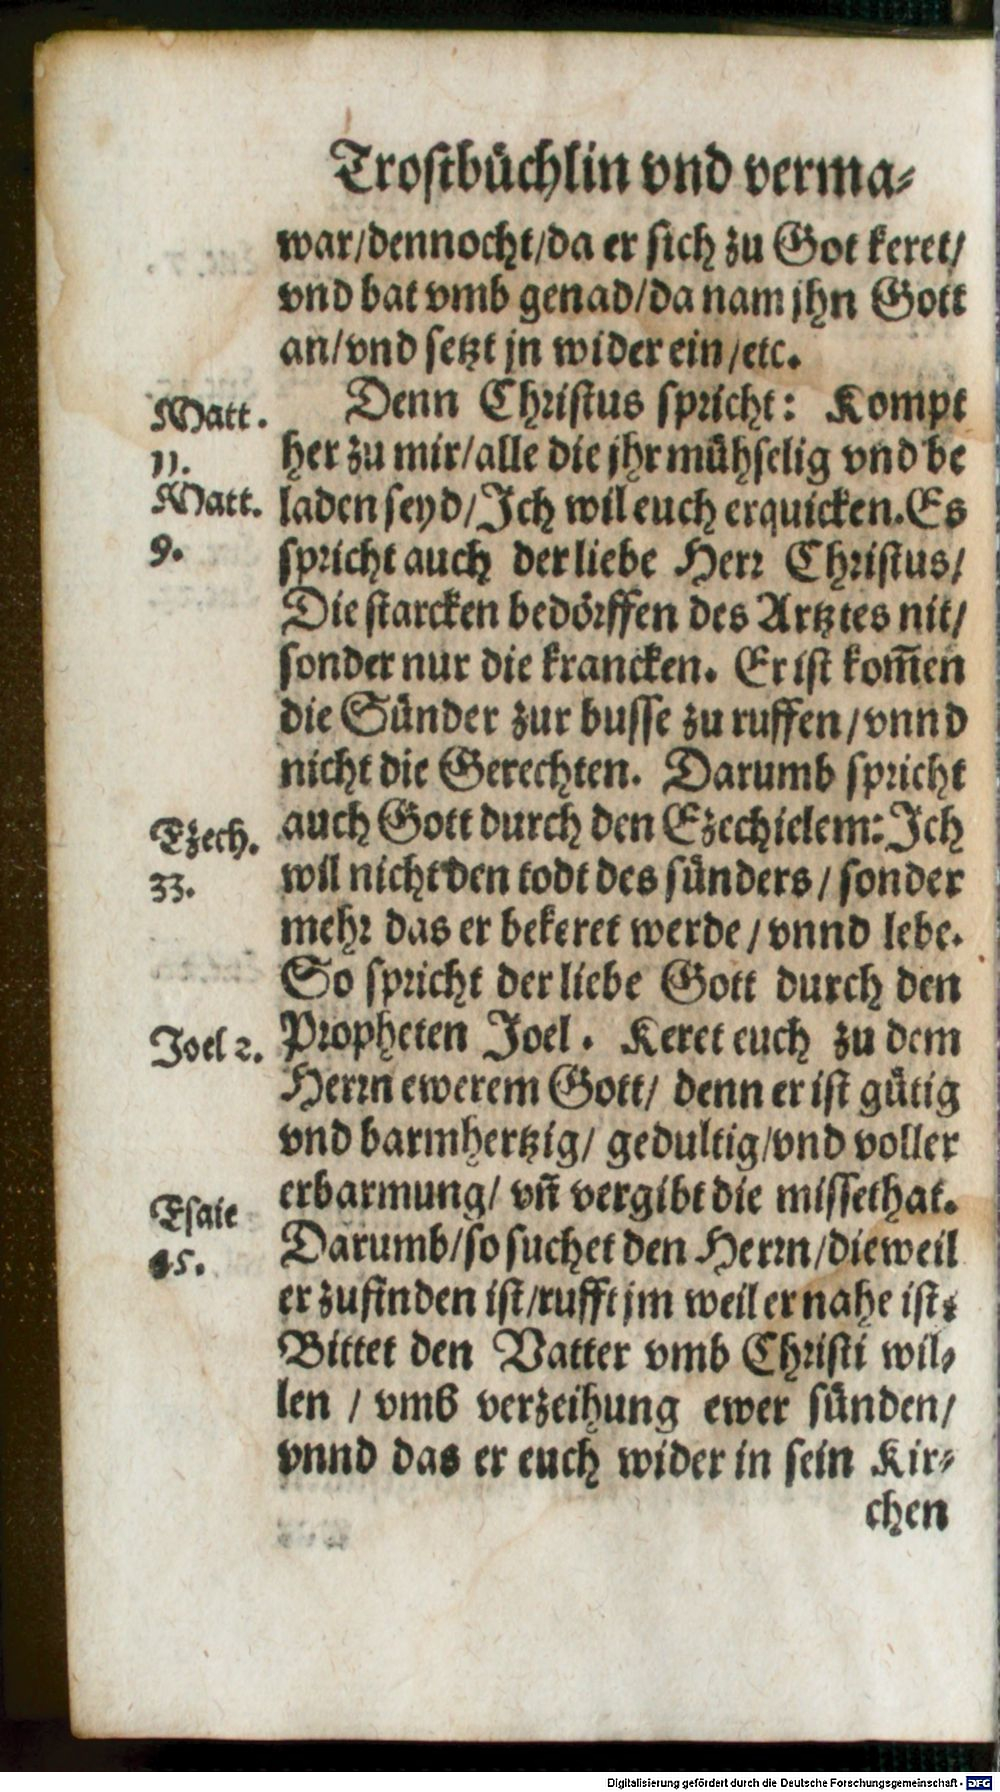 Trostbüchlin vnd verma⸗
war/dennocht/da er sich zu Got keret/
vnd bat vmb genad/da nam jhn Gott
an/vnd setzt jn wider ein/etc.
Denn Christus spricht: Kompt
Matt.
11.
her zu mir/alle die jhr mühselig vnd be
Matt.
9.
laden seyd/Jch wil euch erquicken.Es
spricht auch der liebe Herr Christus/
Die starcken bedörffen des Artztes nit/
sonder nur die krancken. Er ist kom̄en
die Sünder zur busse zu ruffen/vnnd
nicht die Gerechten. Darumb spricht
auch Gott durch den Ezechielem: Jch
Ezech.
33.
wil nicht den todt des sünders/sonder
mehr das er bekeret werde/vnnd lebe.
So spricht der liebe Gott durch den
Propheten Joel. Keret euch zu dem
Joel 2.
Herrn ewerem Gott/ denn er ist gütig
vnd barmhertzig/ gedultig/vnd voller
erbarmung/ vn̄ vergibt die missethat.
Esaie
45.
Darumb/so suchet den Herrn/dieweil
er zufinden ist/rufft jm weil er nahe ist:
Bittet den Vatter vmb Christi wil⸗
len / vmb verzeihung ewer sünden/
vnnd das er euch wider in sein Kir⸗
chen
Digitalisierung gefördert durch die Deutsche Forschungsgemeinschaft - DFG